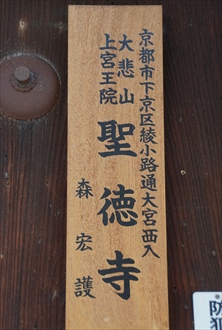 京都市下京区綾小路通大宮西入
大悲山
上宮王院
聖徳寺
森宏護
防犯